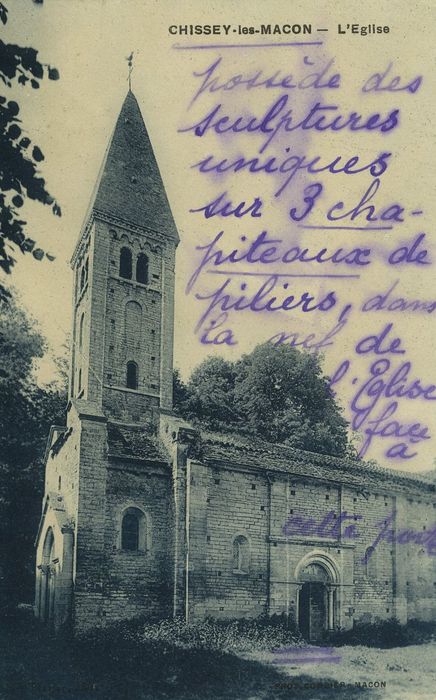 CHISSEY-les-MACON — L'Eglise
possède des
sculptures
uniques
sur 3 cha-
piteaux de
piliers, dans
la nef de
l'Eglise
face à
cette porte
PHOT. COMBIER - MACON